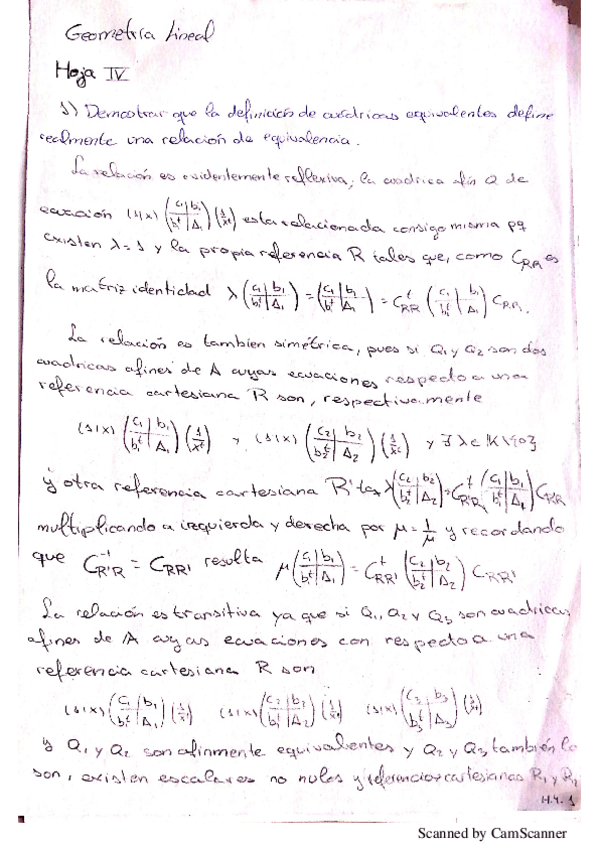 Geometría Lineal
Hoja IV
1) Demostrar que la definición de cuádricas equivalentes define
realmente una relación de equivalencia.
La relación es evidentemente reflexiva; la cuádrica afín Q de
ecuación (1|x) (c₁|b₁ / b₁ᵗ|Δ₁) (1/xᵗ) esta relacionada consigo misma pq
existen λ=1 y la propia referencia R tales que, como C_RR es
la matriz identidad λ (c₁|b₁ / b₁ᵗ|Δ₁) = (c₁|b₁ / b₁ᵗ|Δ₁) = Cᵗ_RR (c₁|b₁ / b₁ᵗ|Δ₁) C_RR.
La relación es tambien simétrica, pues si Q₁ y Q₂ son dos
cuadricas afines de A cuyas ecuaciones respecto a una
referencia cartesiana R son, respectivamente
(1|x) (c₁|b₁ / b₁ᵗ|Δ₁) (1/xᵗ) y (1|x) (c₂|b₂ / b₂ᵗ|Δ₂) (1/xᵗ) y ∃ λ∈K\{0}
y otra referencia cartesiana R' tq λ (c₂|b₂ / b₂ᵗ|Δ₂) = Cᵗ_R'R (c₁|b₁ / b₁ᵗ|Δ₁) C_R'R
multiplicando a izquierda y derecha por μ = 1/μ y recordando
que C⁻¹_R'R = C_RR' resulta μ (c₁|b₁ / b₁ᵗ|Δ₁) = Cᵗ_RR' (c₂|b₂ / b₂ᵗ|Δ₂) C_RR'
La relación es transitiva ya que si Q₁, Q₂ y Q₃ son cuadricas
afines de A cuyas ecuaciones con respecto a una
referencia cartesiana R son
(1|x) (c₁|b₁ / b₁ᵗ|Δ₁) (1/xᵗ) (1|x) (c₂|b₂ / b₂ᵗ|Δ₂) (1/xᵗ) (1|x) (c₃|b₃ / b₃ᵗ|Δ₃) (1/xᵗ)
y Q₁ y Q₂ son afinmente equivalentes y Q₂ y Q₃ también lo
son, existen escalares no nulos y referencias cartesianas R₁ y R₂
H.4. 1
Scanned by CamScanner